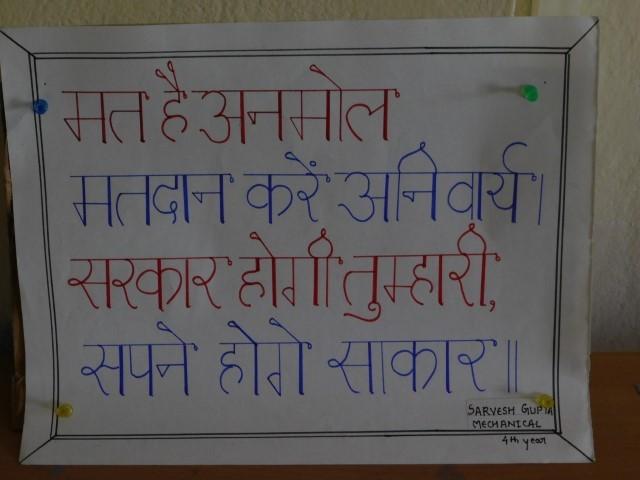 मत है अनमोल
मतदान करें अनिवार्य।
सरकार होगी तुम्हारी,
सपने होगे साकार॥
SARVESH GUPTA
MECHANICAL
4th year